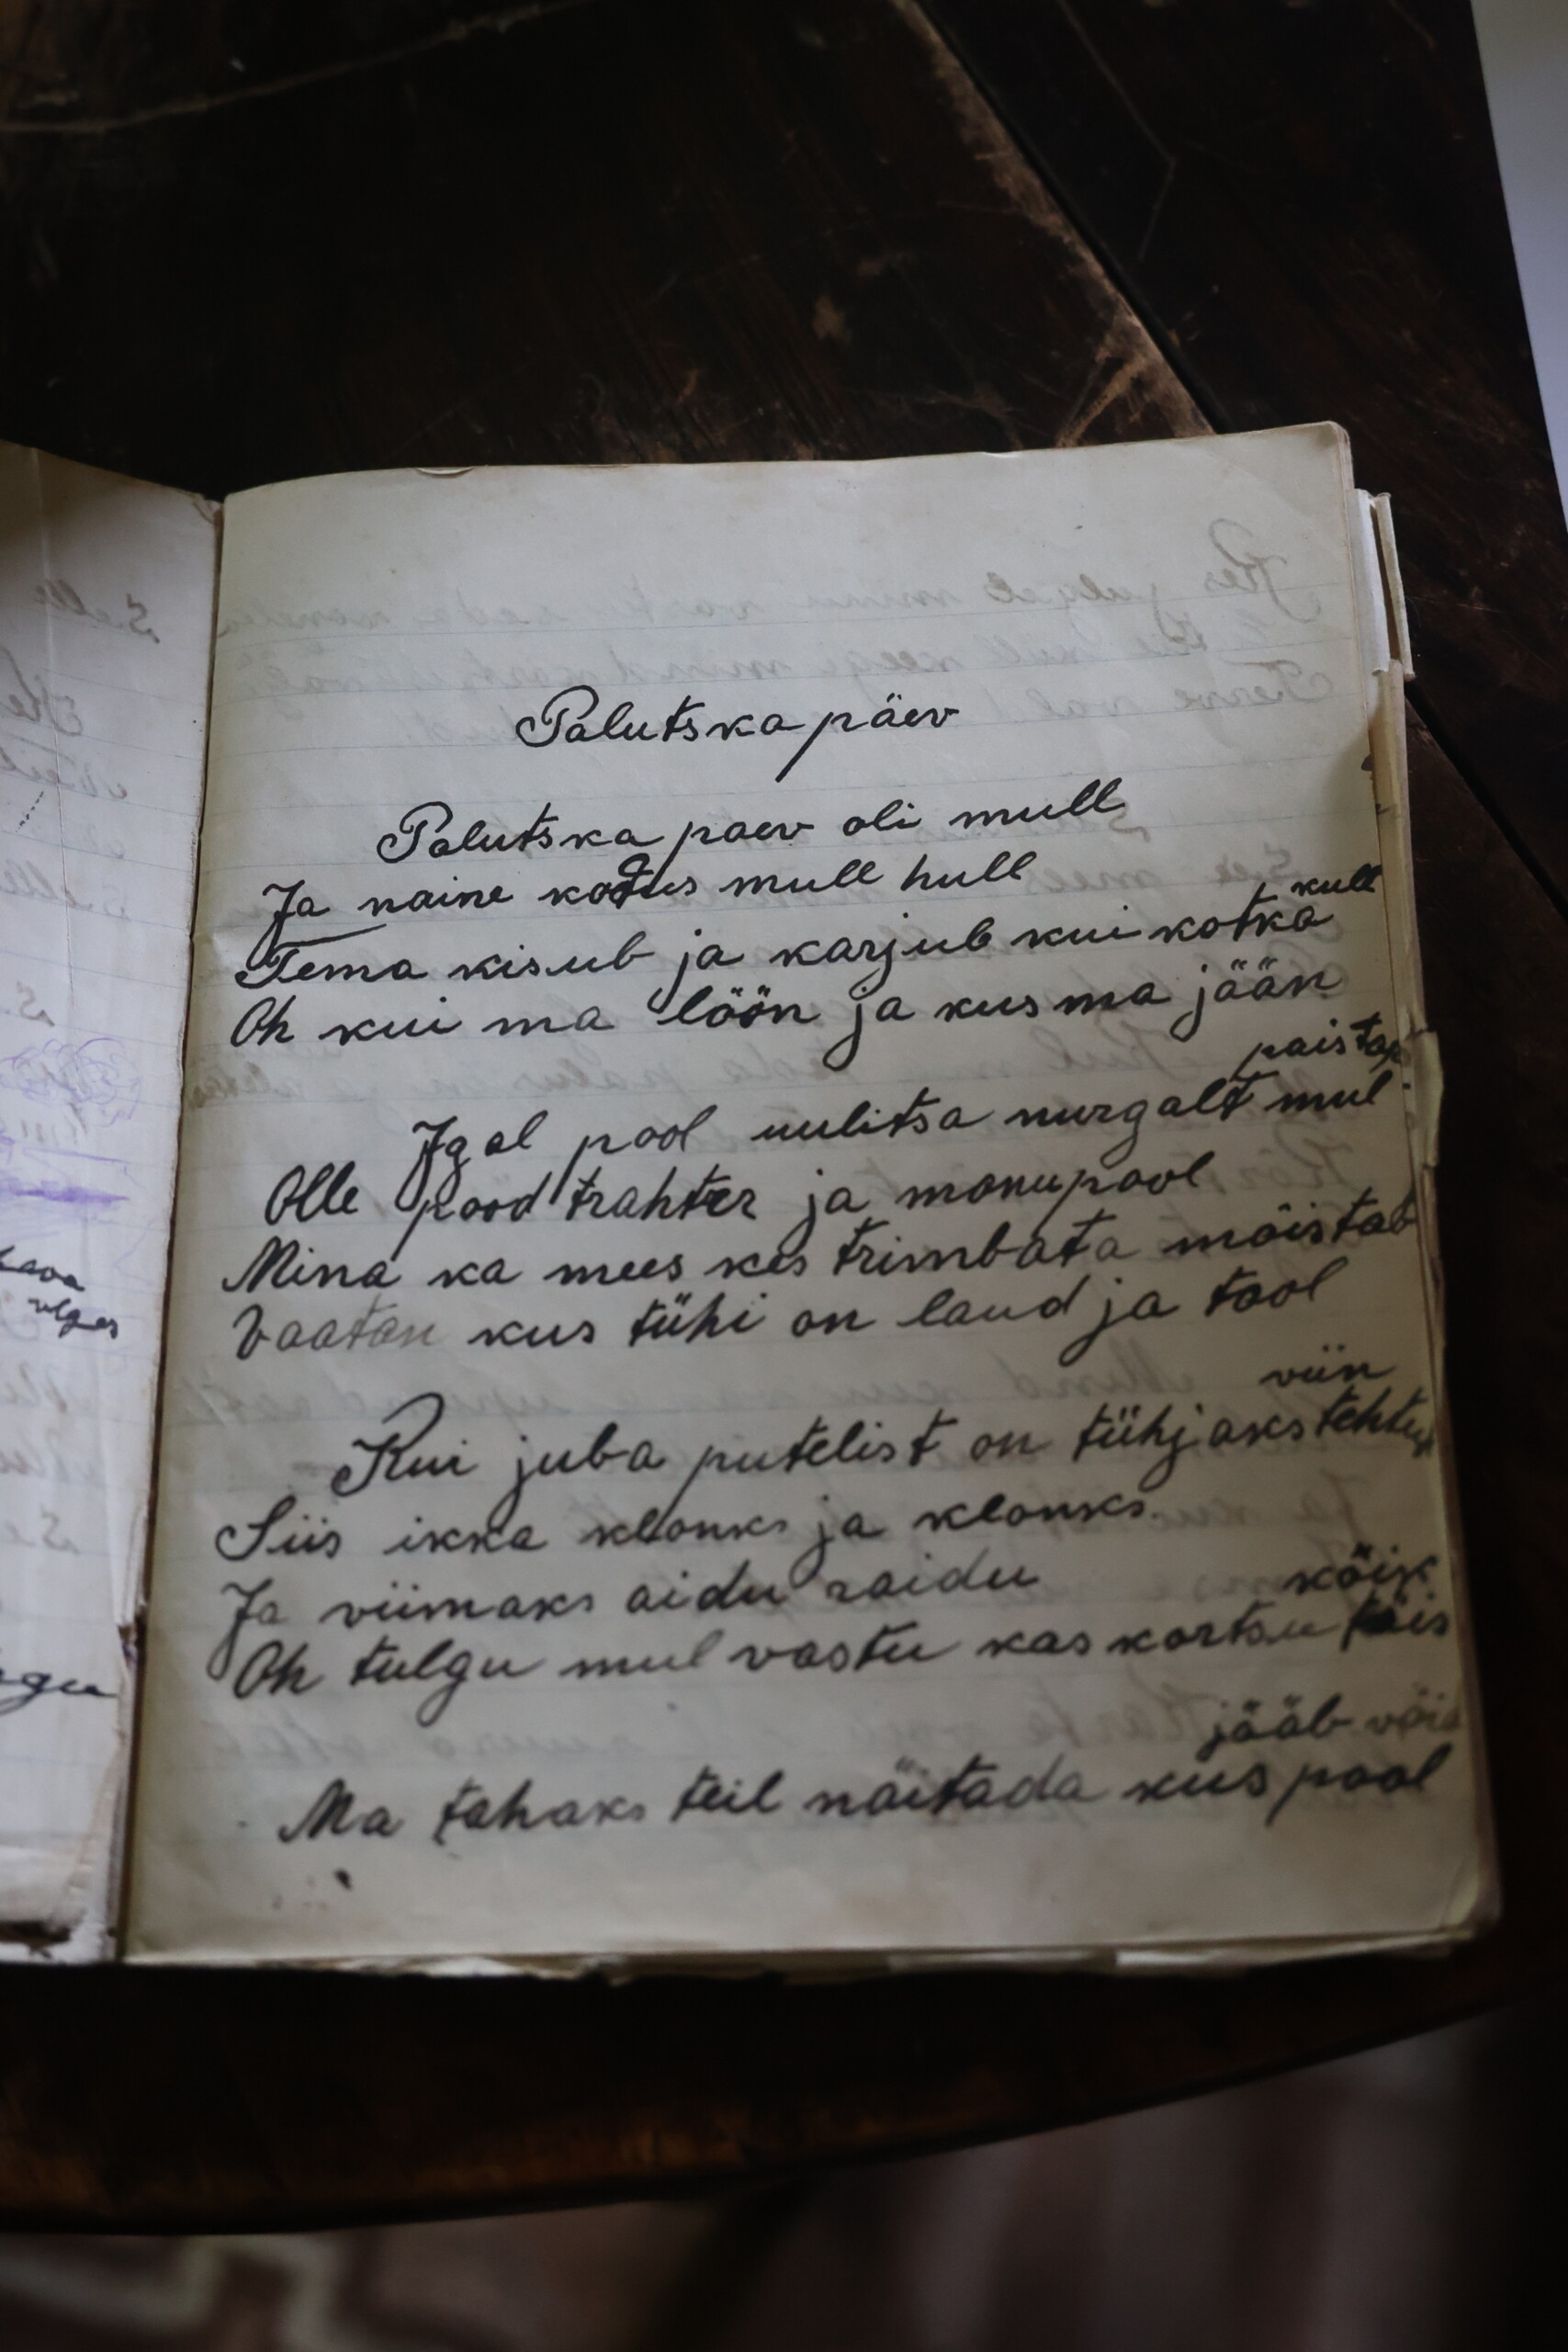 Palutska päev
Palutska paev oli mull
Ja naine kodus mull hull
Tema kisub ja karjub kui kotka kull
Oh kui ma löön ja kus ma jään
Igal pool uulitsa nurgalt mul paistap
Olle pood trahter ja monupool
Mina ka mees kes trimbata mõistab
Vaatan kus tühi on laud ja tool
Kui juba putelist on tühjaks tehtup viin
Siis ikka klonks ja klonks.
Ja viimaks aidu raidu
Oh tulgu mul vastu kas kortsu täis kõik
Ma tahaks teil näitada kus pool jääb võit